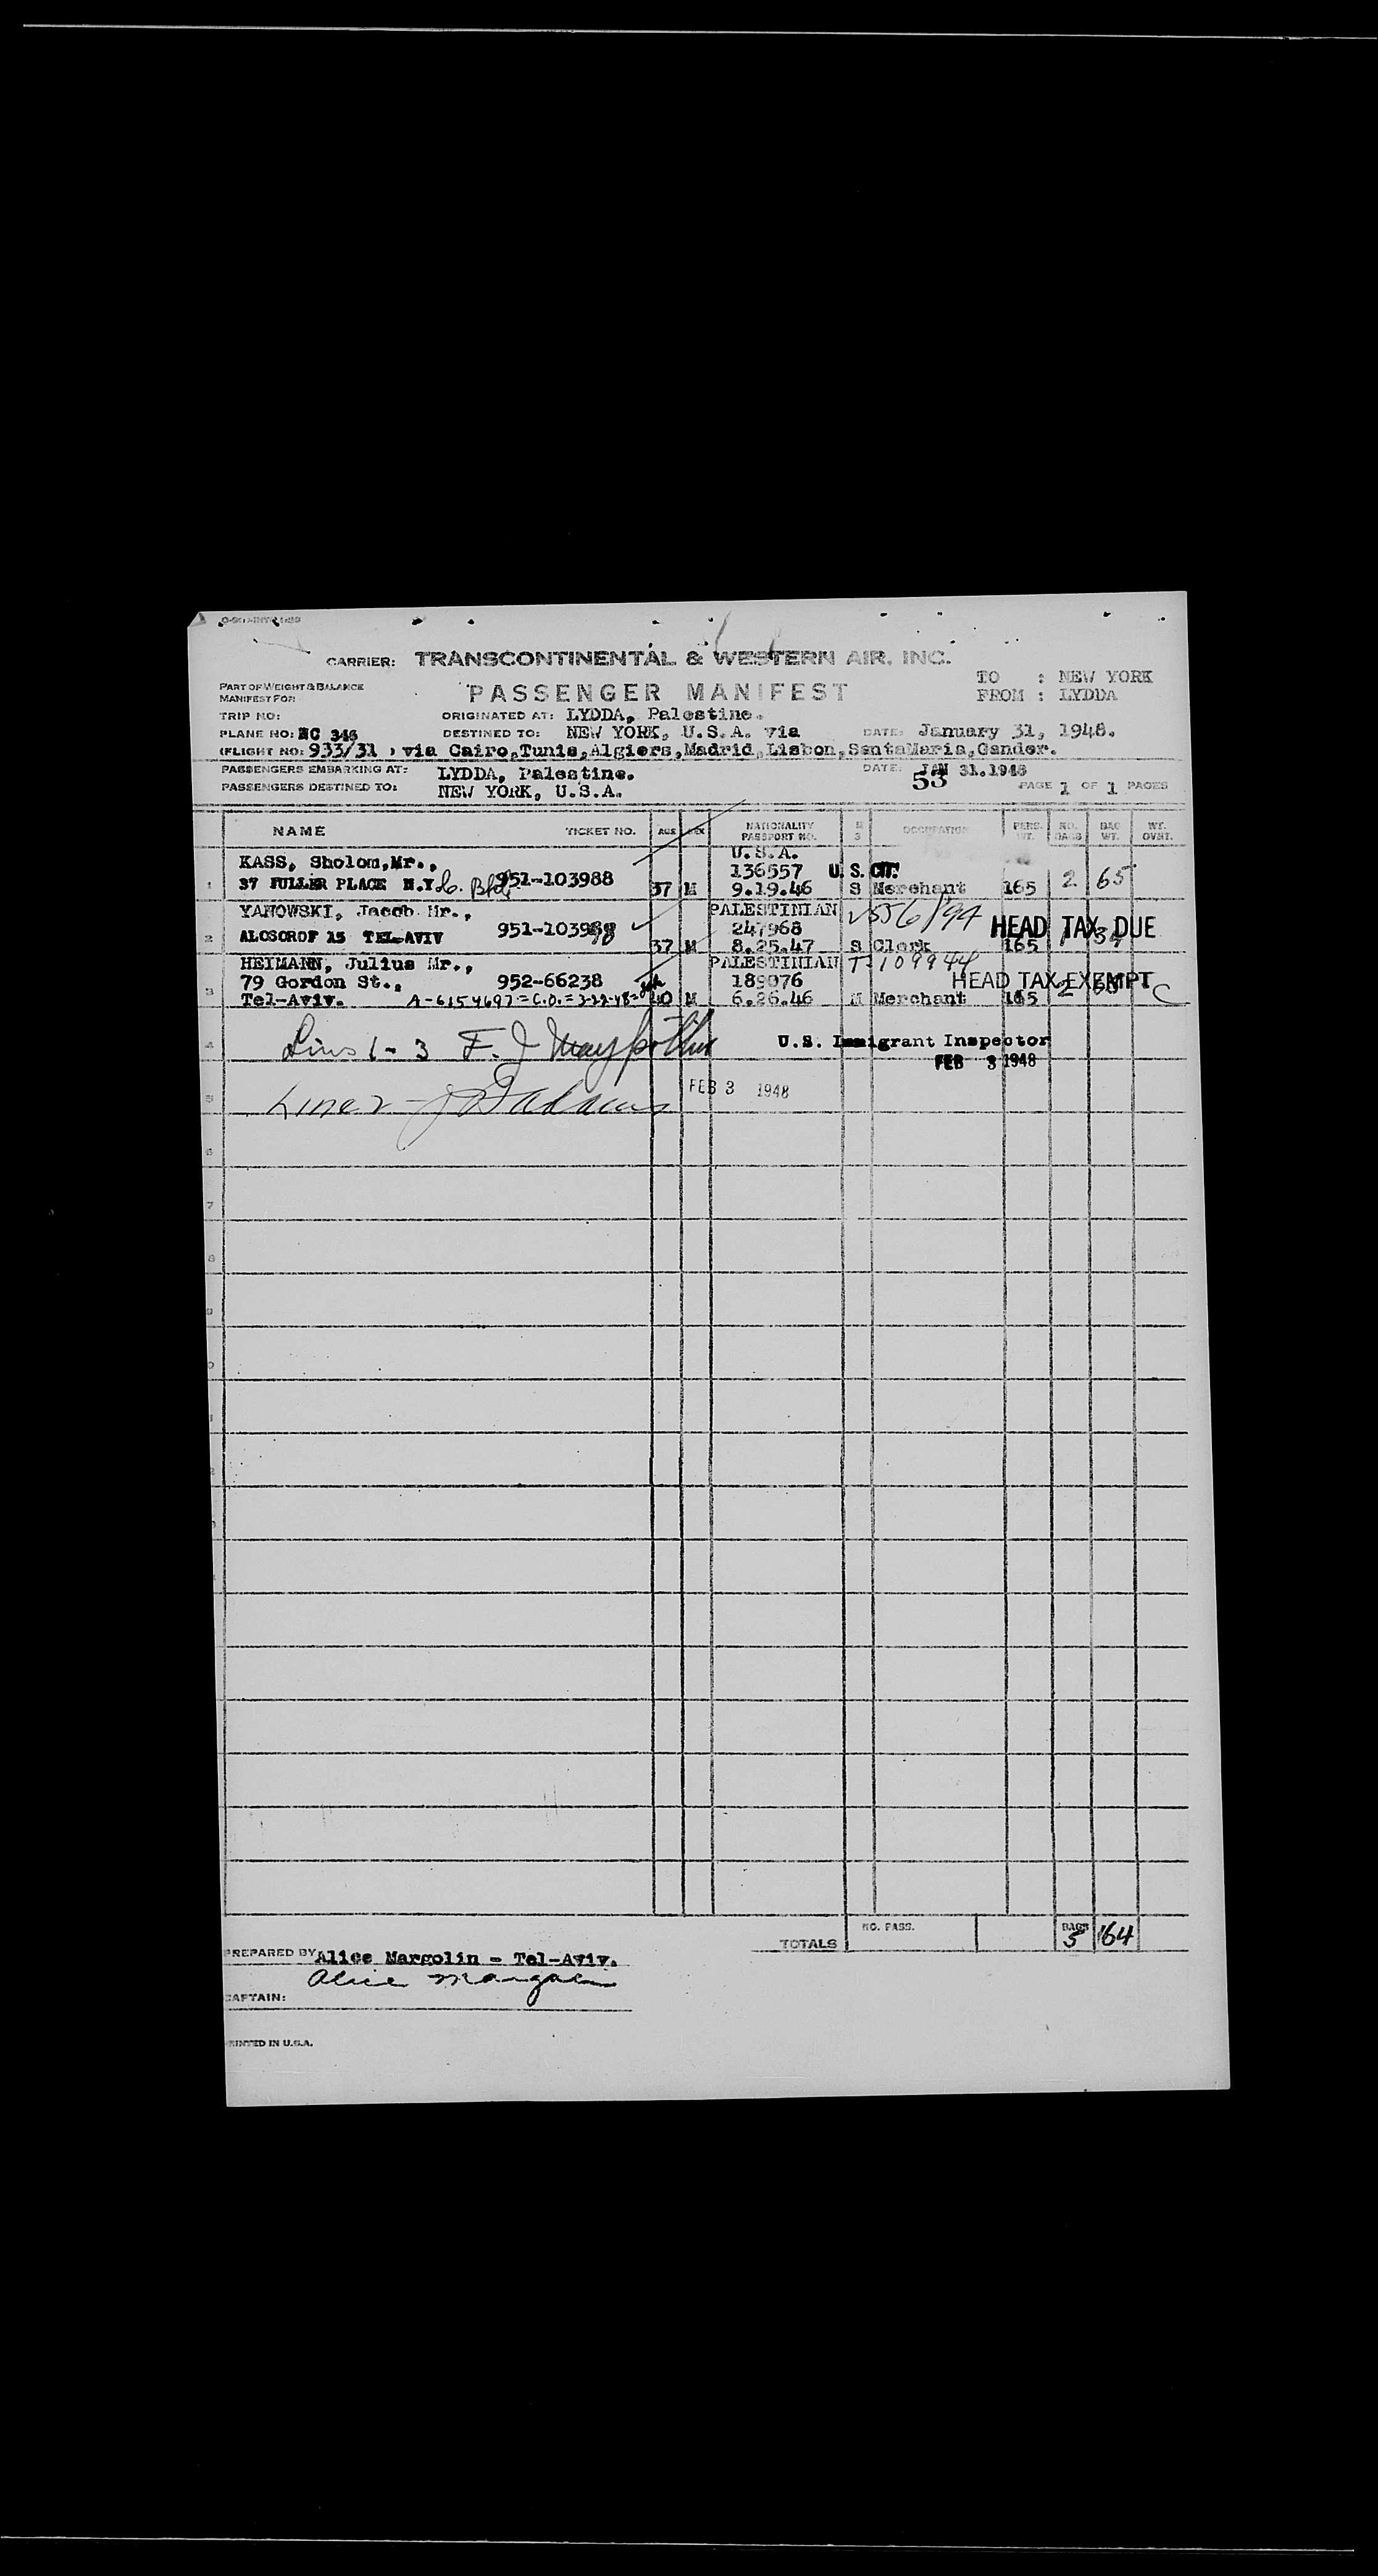 CARRIER: TRANSCONTINENTAL & WESTERN AIR, INC.
PART OF WEIGHT & BALANCE
MANIFEST FOR
PASSENGER MANIFEST
TO : NEW YORK
FROM : LYDDA
TRIP NO:
ORIGINATED AT: LYDDA, Palestine.
PLANE NO: NC 346
DESTINED TO: NEW YORK, U.S.A. via
DATE: January 31, 1948.
(FLIGHT NO: 933/31 ) via Cairo,Tunis,Algiers,Madrid,Lisbon,SantaMaria,Gander.
PASSENGERS EMBARKING AT: LYDDA, Palestine.
DATE: JAN 31.1948
PASSENGERS DESTINED TO: NEW YORK, U.S.A.
53
PAGE 1 OF 1 PAGES
NAME TICKET NO. AGE SEX NATIONALITY PASSPORT NO. M S OCCUPATION PERS. WT. NO. BAGS BAG WT. WT. OVHT.
KASS, Sholom,Mr., U.S.A.
951-103988 136557 U.S. CIT.
1 37 FULLER PLACE N.Y. 37 M 9.19.46 S Merchant 165 2 65
YANOWSKI, Jacob Mr., PALESTINIAN
2 ALOSOROF 15 TEL-AVIV 247968 HEAD TAX DUE
37 M 8.25.47 S Clerk 165
HEIMANN, Julius Mr., PALESTINIAN T-109944
79 Gordon St., 952-66238 189076 HEAD TAX EXEMPT
3 Tel-Aviv. A-6154697=C.O.=3-22-48= 40 M 6.26.46 M Merchant 165 2 C
4 Lines 1-3 F. J U.S. Immigrant Inspector
FEB 3 1948
5 Line 2 - FEB 3 1948
6
7
8
9
TOTALS NO. PASS. BAGS 5 164
PREPARED BY Alice Margolin - Tel-Aviv.
Alice Margolin
CAPTAIN:
PRINTED IN U.S.A.